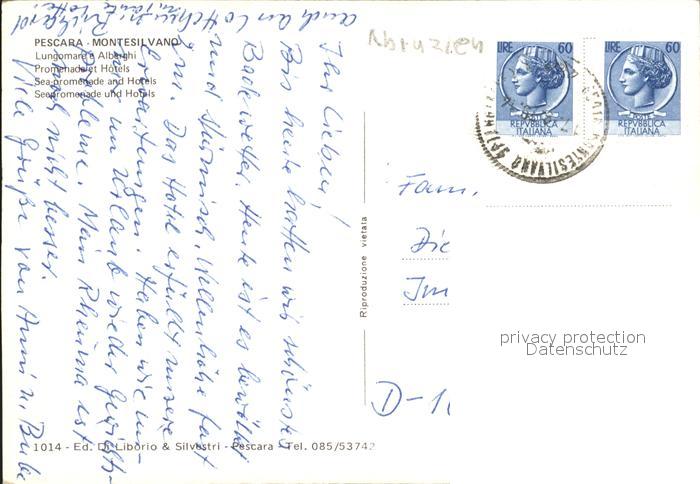 PESCARA - MONTESILVANO
Lungomare e Alberghi
Promenade et Hôtels
Sea-promenade and Hotels
Seepromenade und Hotels
Ihr Lieben!
Bis heute hatten wir schönstes
Badewetter. Heute ist es bewölkt
und stürmisch, Wellenhöhe fast
3 m. Das Hotel erfüllt unsere
Erwartungen. Haben wie im-
mer im Urlaub wieder Gewichts-
probleme. Mein Rheuma ist
noch nicht besser.
Viele Grüße von Anni u. Bube
auch an Lottchen
Abruzzen
LIRE 60
REPVBBLICA
ITALIANA
LIRE 60
REPVBBLICA
ITALIANA
MONTESILVANO
Fam.
Die
Im
D-1
Riproduzione vietata
privacy protection
Datenschutz
1014 - Ed. Di Liborio & Silvestri - Pescara - Tel. 085/53742